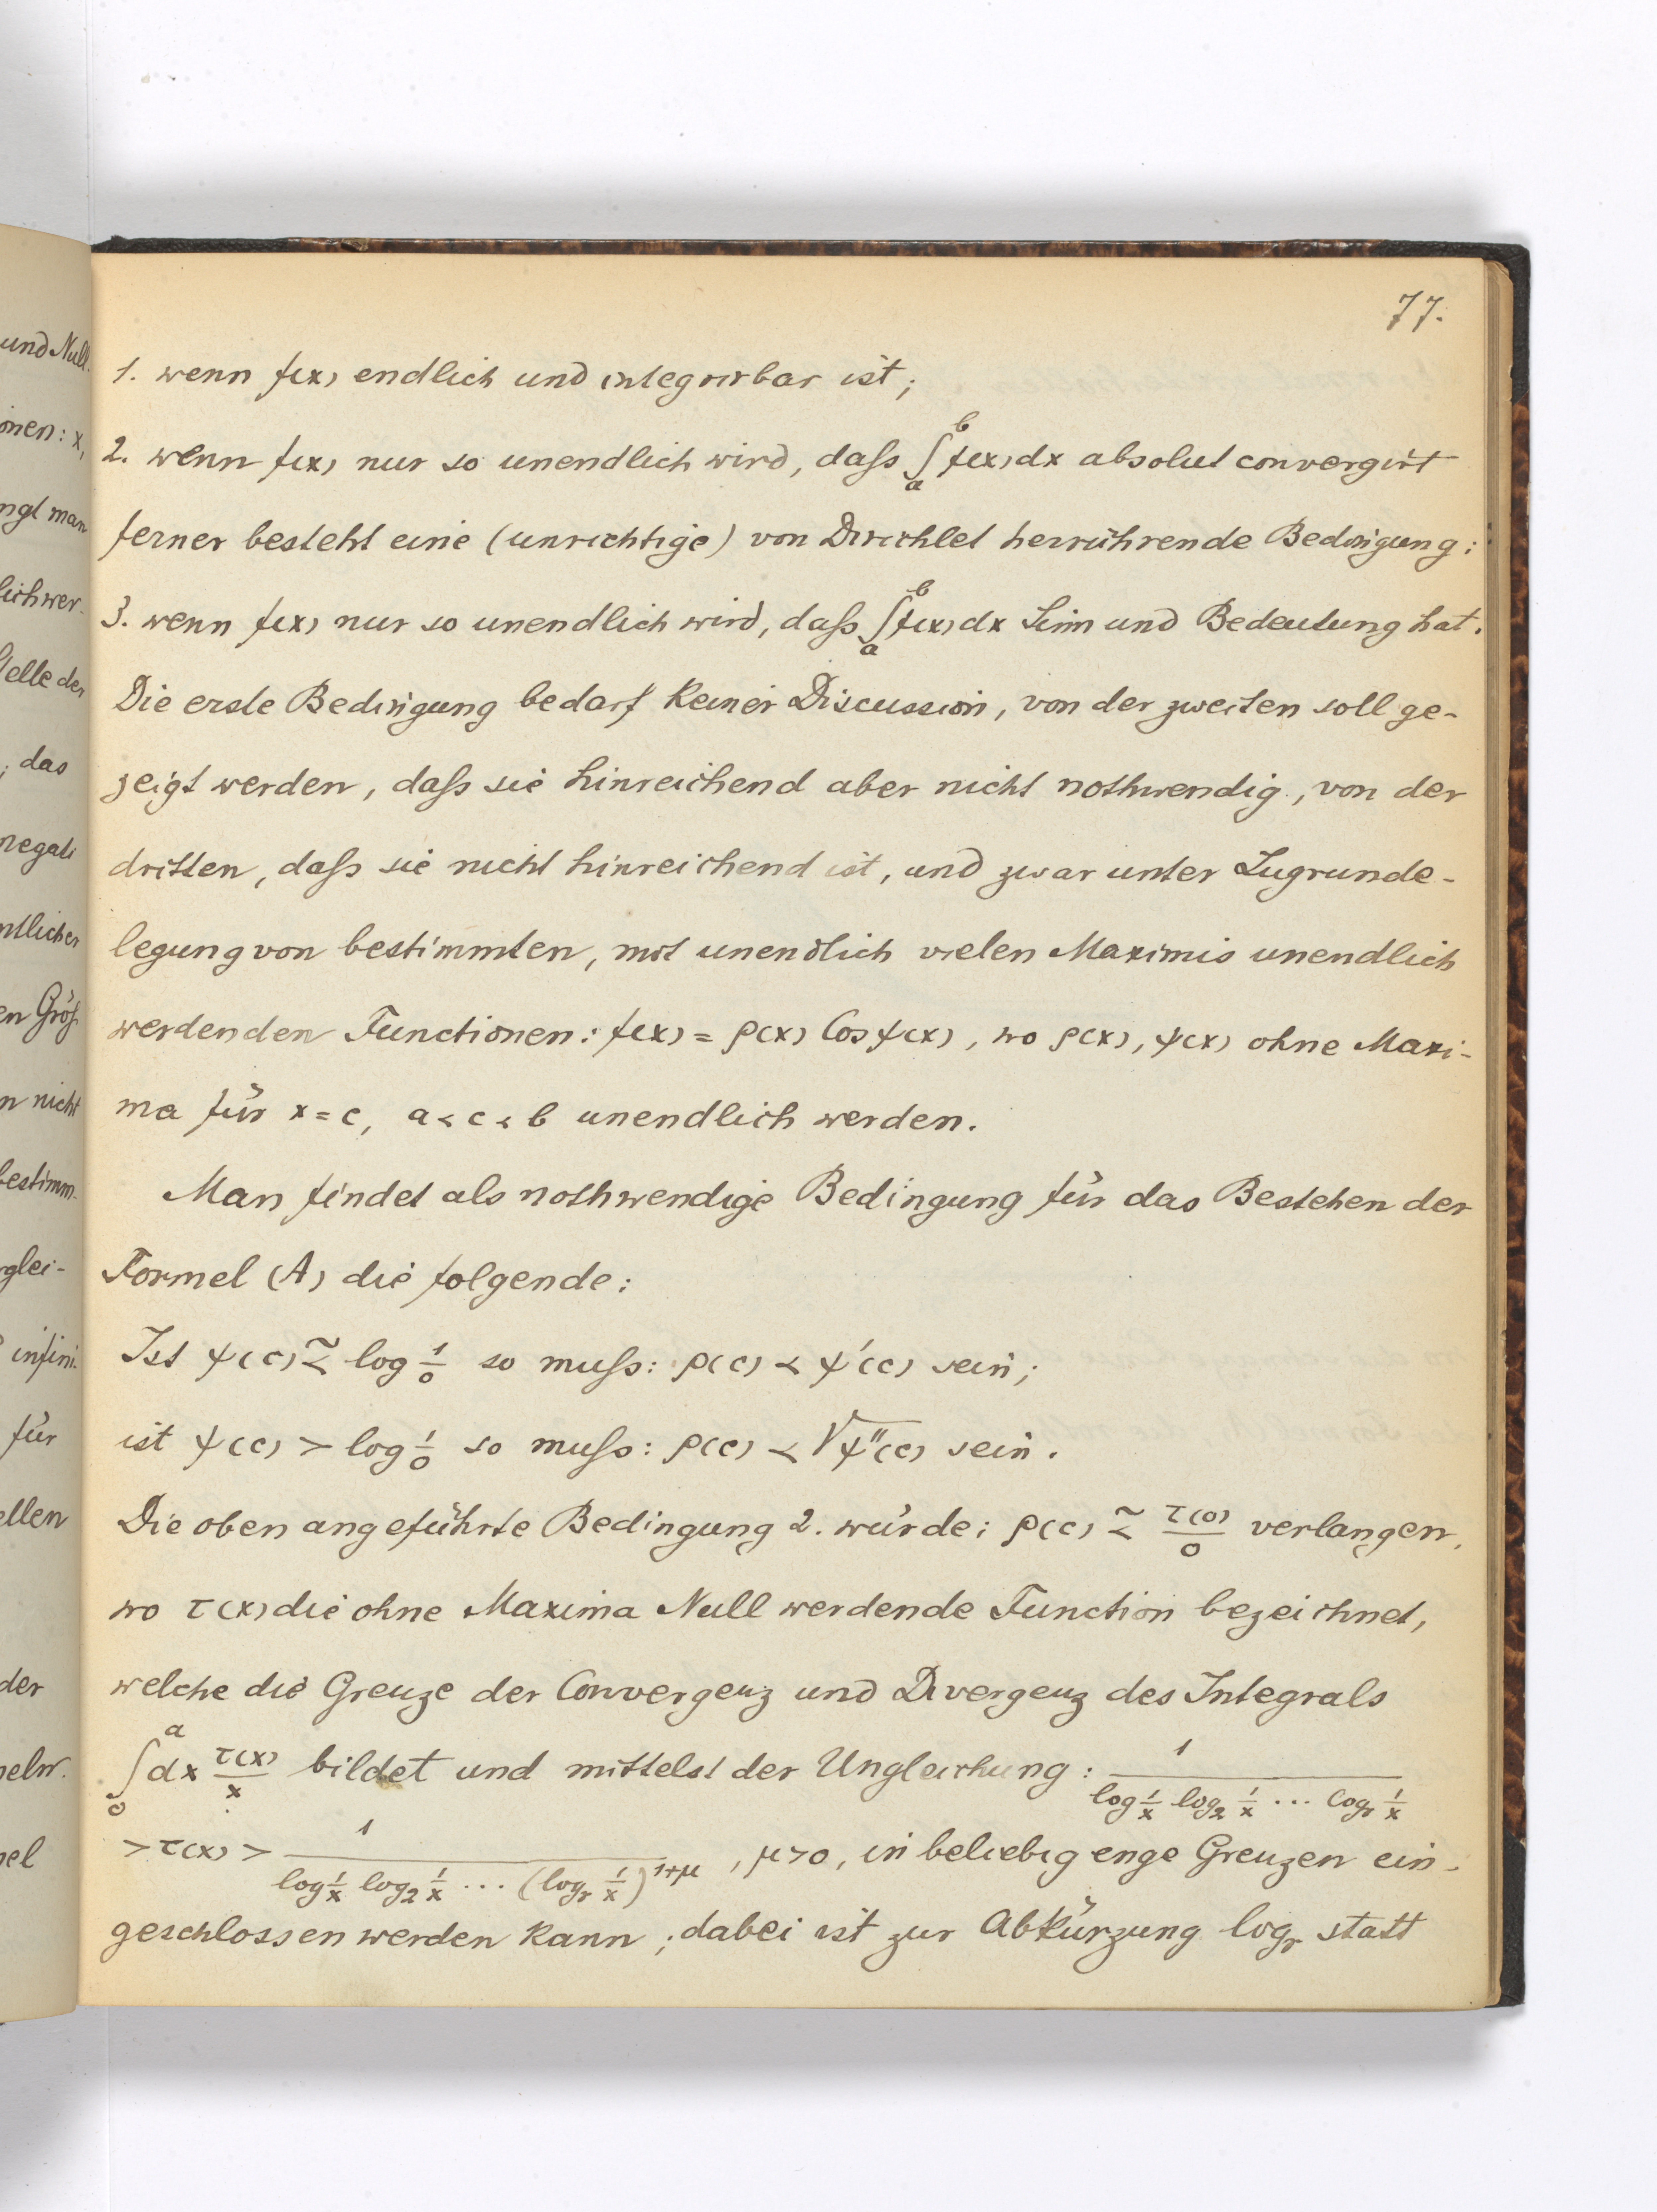 77.
1. wenn f(x) endlich und integrirbar ist;
2. wenn f(x) nur so unendlich wird, daſs ∫_a^b f(x)dx absolut convergirt
ferner besteht eine (unrichtige) von Dirichlet herrührende Bedingung:
3. wenn f(x) nur so unendlich wird, daſs ∫_a^b f(x)dx Sinn und Bedeutung hat.
Die erste Bedingung bedarf keiner Discussion, von der zweiten soll ge-
zeigt werden, daſs sie hinreichend aber nicht nothwendig, von der
dritten, daſs sie nicht hinreichend ist, und zwar unter Zugrunde-
legung von bestimmten, mit unendlich vielen Maximis unendlich
werdenden Functionen: f(x) = ρ(x) Cos ψ(x), wo ρ(x), ψ(x) ohne Maxi-
ma für x = c, a < c < b unendlich werden.
Man findet als nothwendige Bedingung für das Bestehen der
Formel (A) die folgende:
Ist ψ(c) ≲ log 1/0 so muſs: ρ(c) < ψ'(c) sein;
ist ψ(c) > log 1/0 so muſs: ρ(c) < √ψ''(c) sein.
Die oben angeführte Bedingung 2. würde: ρ(c) ≲ τ(0)/0 verlangen,
wo τ(x) die ohne Maxima Null werdende Function bezeichnet,
welche die Grenze der Convergenz und Divergenz des Integrals
∫_0^a dx τ(x)/x bildet und mittelst der Ungleichung: 1/(log 1/x log₂ 1/x ... log_r 1/x)
> τ(x) > 1/(log 1/x log₂ 1/x ... (log_r 1/x)^{1+μ}), μ>0, in beliebig enge Grenzen ein-
geschlossen werden kann; dabei ist zur Abkürzung log_r statt
und Null.
onen: x,
ngt man
lich wer-
telle der
; das
negati
ntlicher
en Gröſ
n nicht
bestimm-
rglei-
infini-
für
ellen
der
neln.
nel